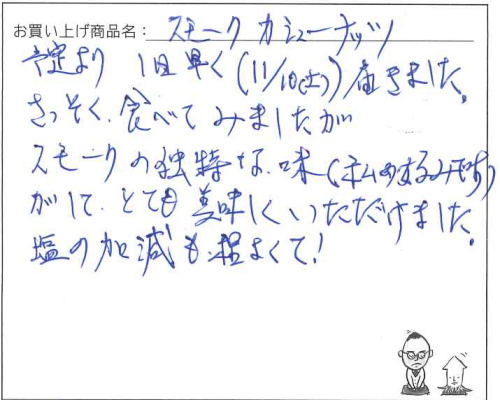 お買い上げ商品名：スモークカシューナッツ
予定より 1日早く(11/10(土))届きました。
さっそく、食べてみましたが
スモークの独特な、味(私の
がして、とても美味しくいただけました。
塩の加減も程よくて!